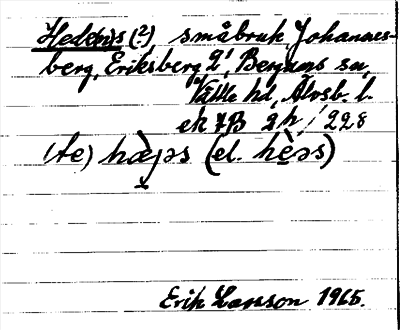 Hedens (?), småbruk Johannes-
berg, Eriksberg 2¹, Bergums sn,
Vättle hd, Älvsb. l.
ek 7B 2h / 228
(te) hæ̀ƞəs (el. hè̱əs)
Erik Larsson 1965.